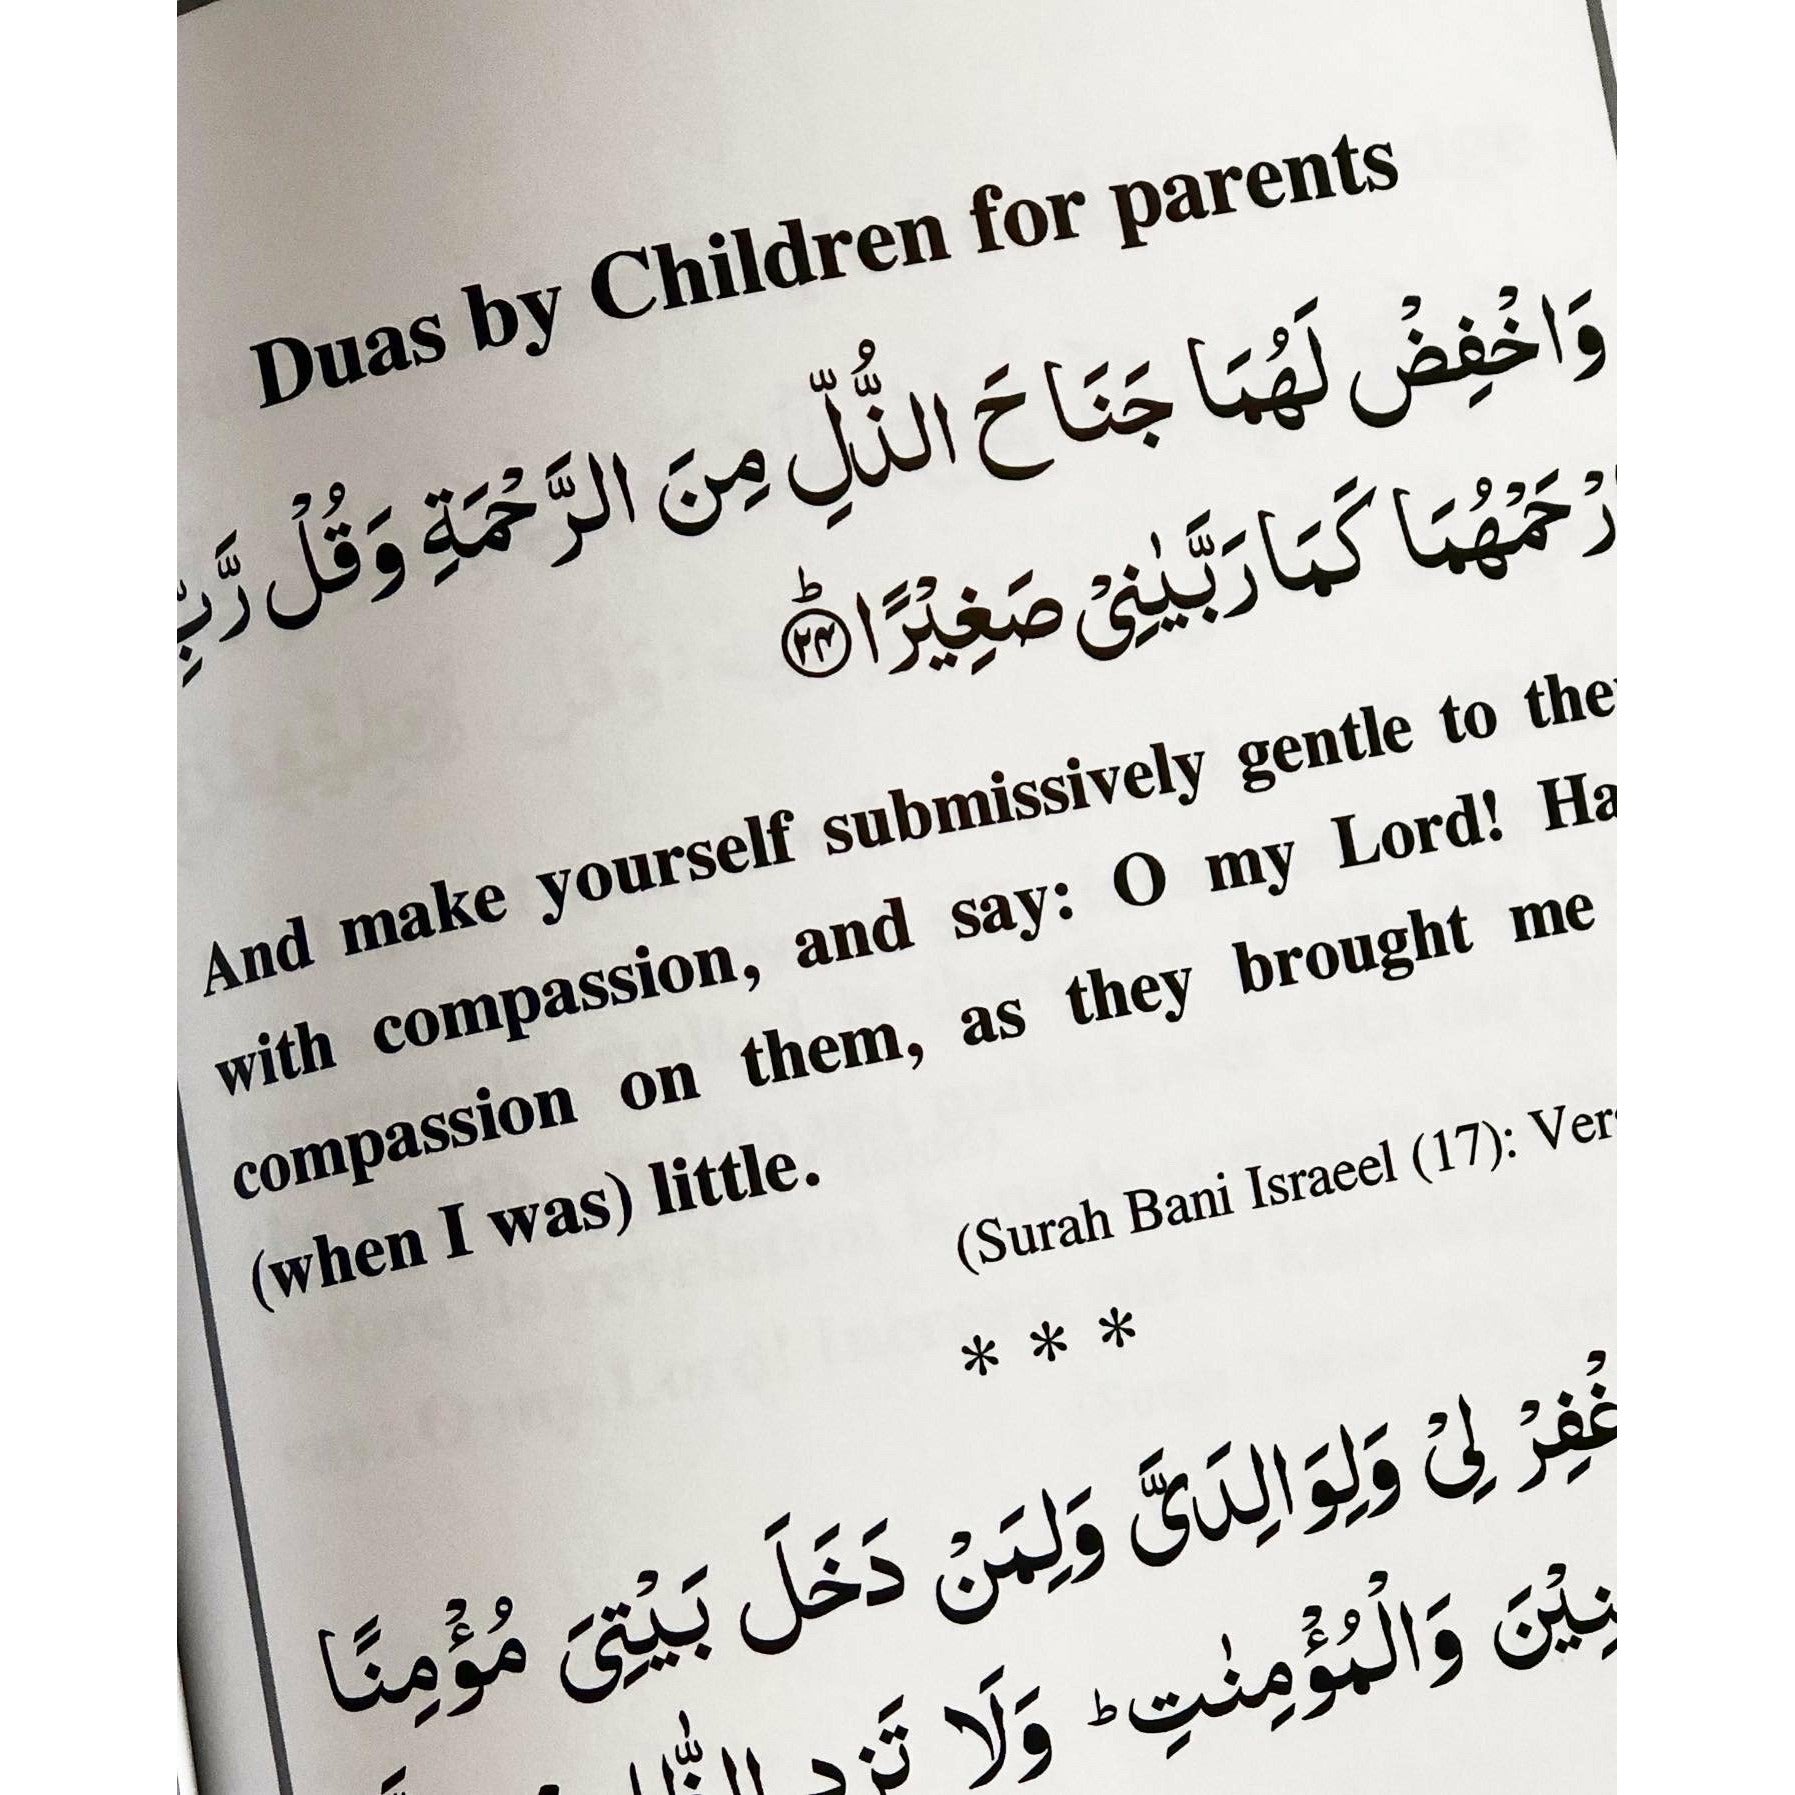 Duas by Children for parents
وَاخْفِضْ لَهُمَا جَنَاحَ الذُّلِّ مِنَ الرَّحْمَةِ وَقُلْ رَّبِّ
ارْحَمْهُمَا كَمَا رَبَّيٰنِیْ صَغِیْرًا ؕ ﴿۲۴﴾
And make yourself submissively gentle to
with compassion, and say: O my Lord!
compassion on them, as they brought me
(when I was) little.
(Surah Bani Israeel (17):
* * *
لِیْ وَلِوَالِدَیَّ وَلِمَنْ دَخَلَ بَیْتِیَ مُؤْمِنًا
وَالْمُؤْمِنٰتِ ؕ وَلَا تَزِدِ